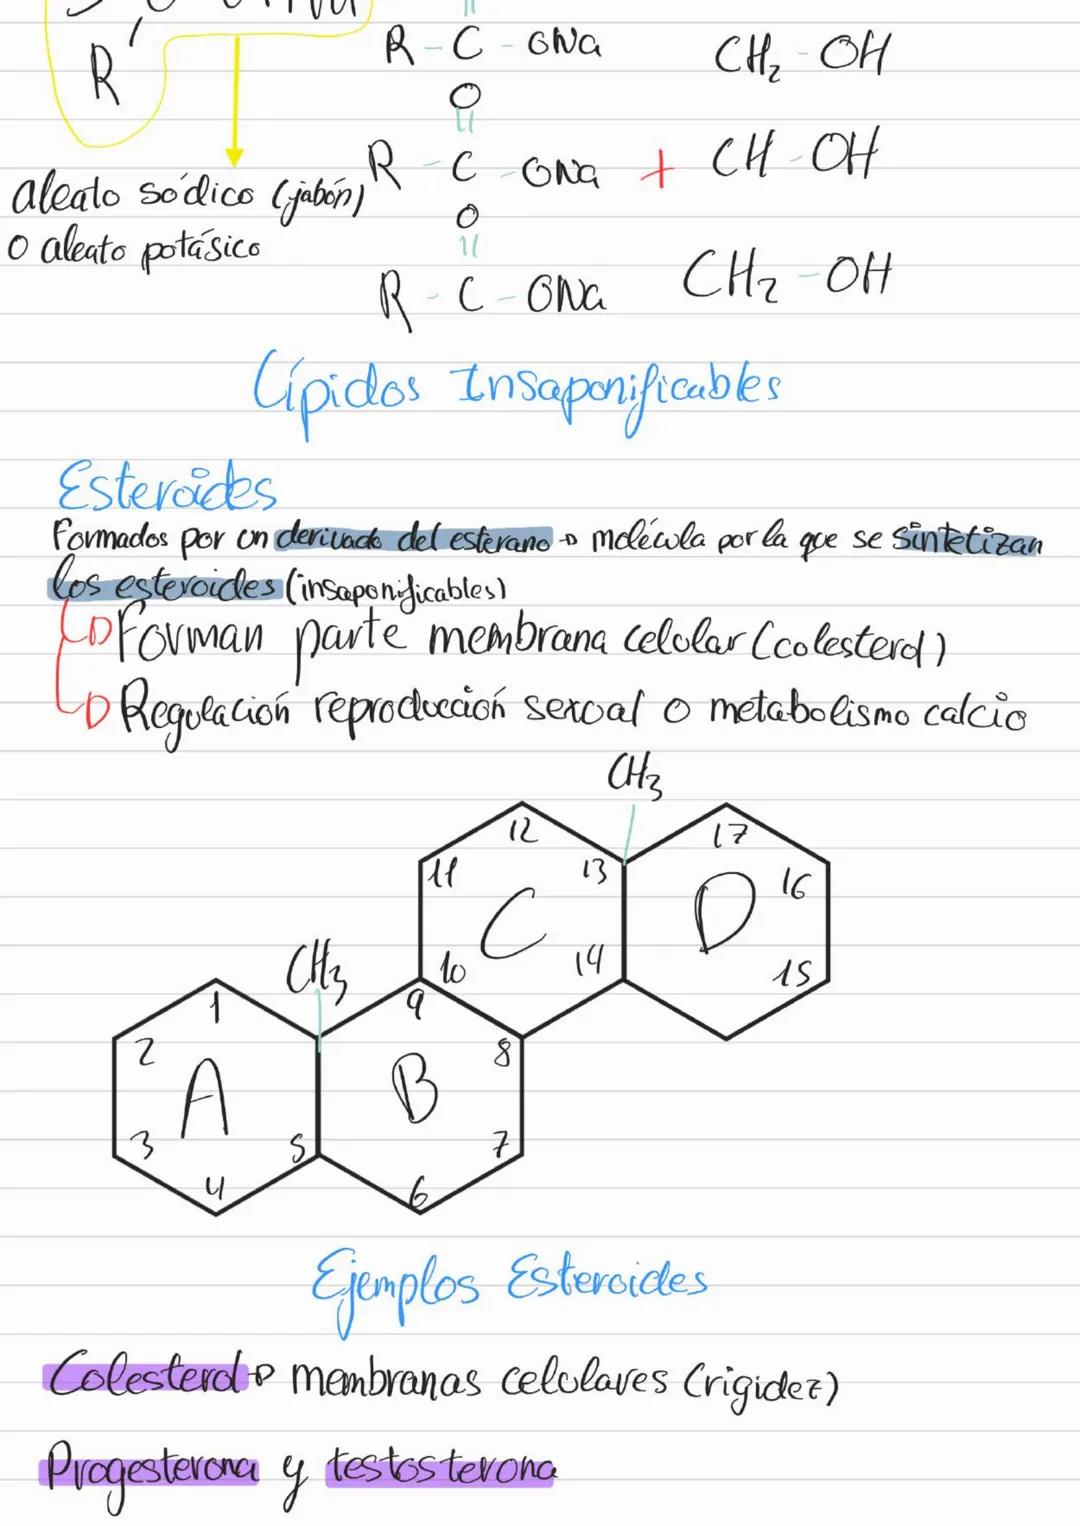 R'
R - C - ONa
CH₂ - OH
O
R - C - ONa + CH - OH
aleato sódico (jabón)
o aleato potásico
O
R - C - ONa
CH₂ - OH
Lípidos Insaponificables
Esteroides
Formados por un derivado del esterano → molécula por la que se sintetizan
los esteroides (insaponificables)
→ Forman parte membrana celular (colesterol)
→ Regulación reproducción sexual o metabolismo calcio
CH₃
12 17
11 13 16
C D
CH₃ 10 14 15
1 9
2 8
A B
3 5 7
4 6
Ejemplos Esteroides
Colesterol → membranas celulares (rigidez)
Progesterona y testosterona